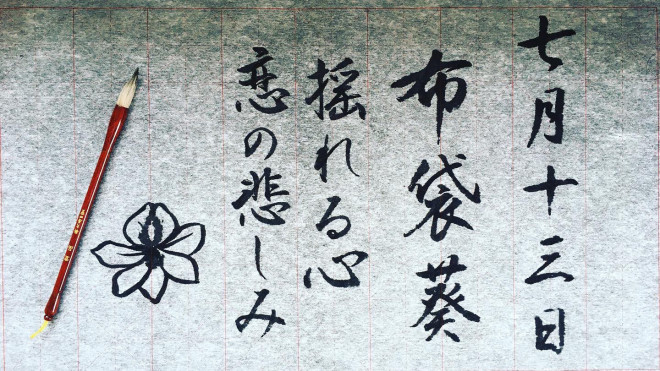 七月十三日
布袋葵
揺れる心
恋の悲しみ